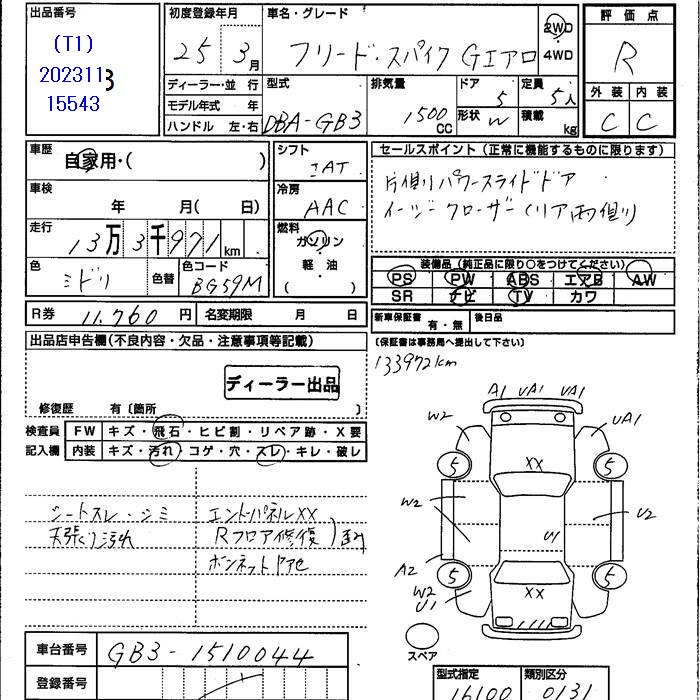 出品番号
(T1)
202311
15543
3
初度登録年月
25 3月
車名・グレード
フリード・スパイク Gエアロ
2WD
4WD
評価点
R
外装 内装
C C
ディーラー・並 行
モデル年式 年
ハンドル 左・右
型式
DBA-GB3
排気量
1500
CC
ドア
5
形状 W
定員
5人
積載
kg
車歴
自家用・( )
車検
年 月( 日)
走行
13万3千971km
色
ミドリ
色替
色コード
BG59M
シフト
IAT
冷房
AAC
燃料
ガソリン
軽・油
( )
セールスポイント(正常に機能するものに限ります)
片側りパワースライドドア
イージークローザー(リア両側り)
装備品(純正品に限り○をつけてください)
PS PW ABS エアB AW
SR ナビ TV カワ
R券 11,760円
名変期限 月 日
新車保証書 有・無
後日品
(保証書は事務局へ提出して下さい)
133972km
出品店申告欄(不良内容・欠品・注意事項等記載)
ディーラー出品
修復歴 有〔箇所 〕
検査員
記入欄
FW キズ・飛石・ヒビ割・リペア跡・X要
内装 キズ・汚れ・コゲ・穴・スレ・キレ・破レ
シートスレ・シミ
天張り汚れ
エンドパネルXX
Rフロア修復
ボンネット
A1 UA1 UA1
W2 UA1
5 XX 5
W2 U2
U1
A2
W2
U1
5 XX 5
スペア
車台番号 GB3-1510044
登録番号
型式指定 類別区分
16100 0131